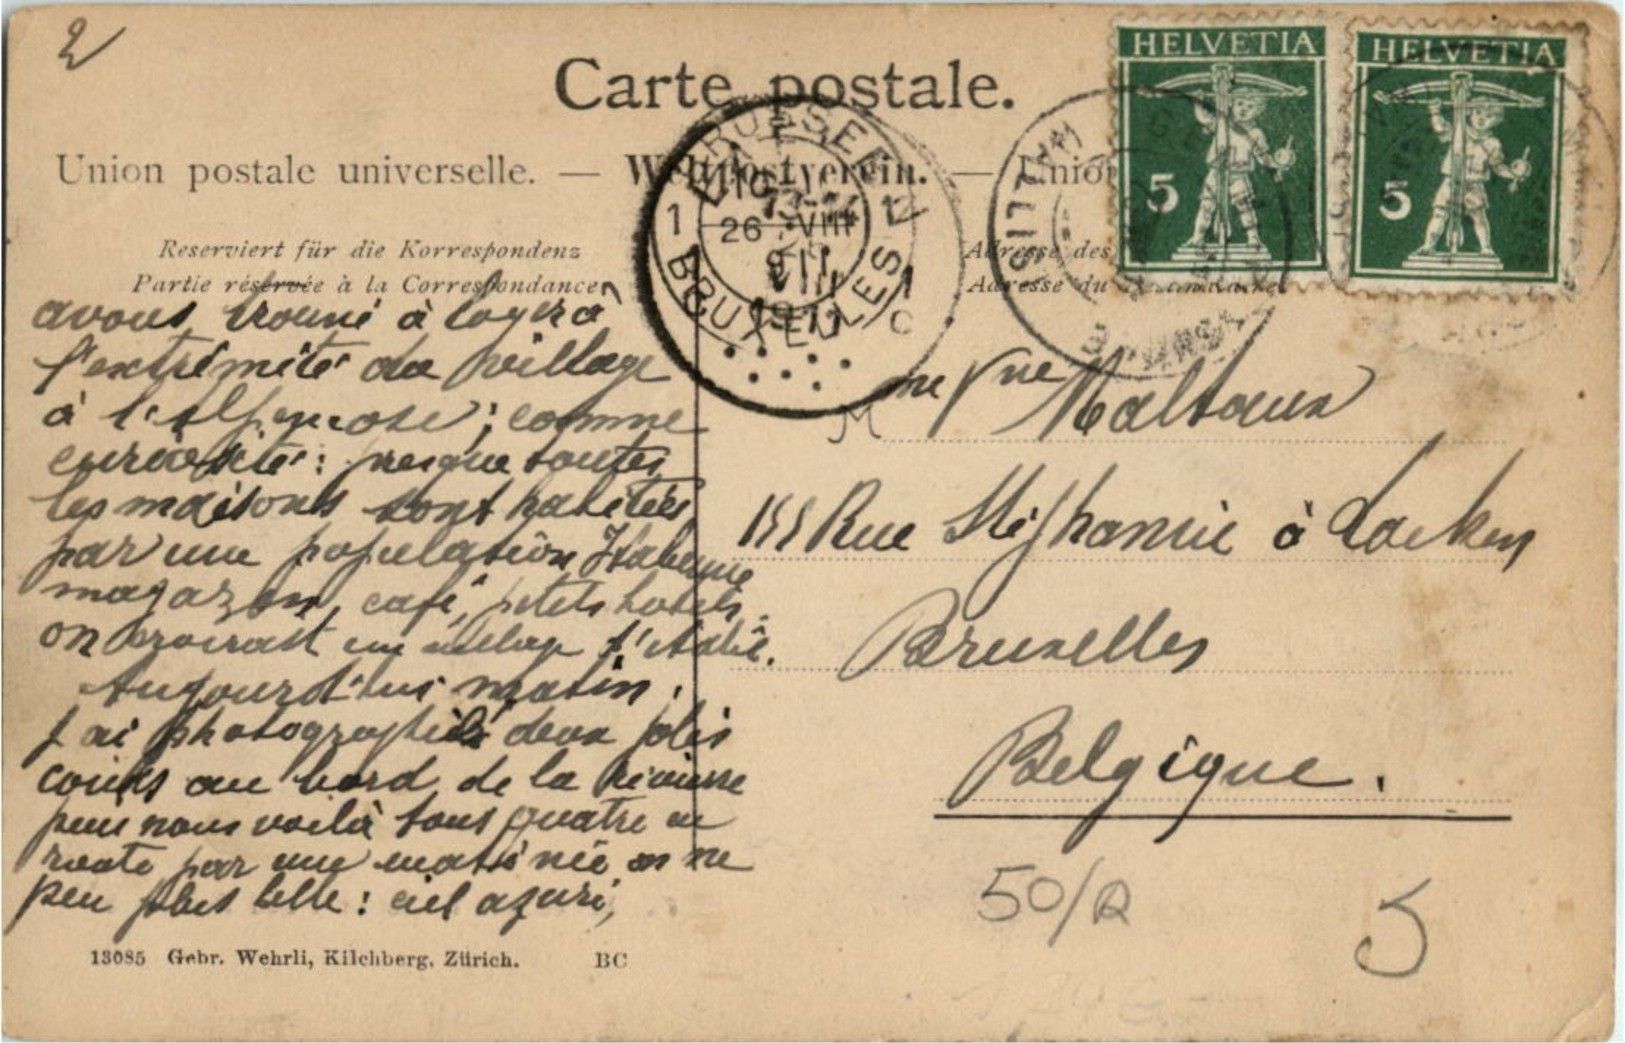 2
Carte postale.
HELVETIA
5
HELVETIA
5
Union postale universelle. — Weltpostverein. — Union
BRUSSEL
1 26 VIII 1
1911
BRUXELLES
Reserviert für die Korrespondenz
Partie réservée à la Correspondance
Adresse des
Adresse du
avons trouvé à loger à
l'extrémité du village
à l'Alpenrose; comme
curiosité: presque toutes
les maisons sont habitées
par une population Italienne
magazin, café, petits hotels,
on croirait un village d'Italie.
Aujourd'hui matin,
j'ai photographié deux jolis
coins au bord de la rivière
puis nous voilà tous quatre en
route par une matinée on ne
peu plus belle: ciel azuré,
Mme Vve Maltaux
Rue Stéphanie à Laeken
Bruxelles
Belgique.
13085 Gebr. Wehrli, Kilchberg, Zürich. BC
50/
5